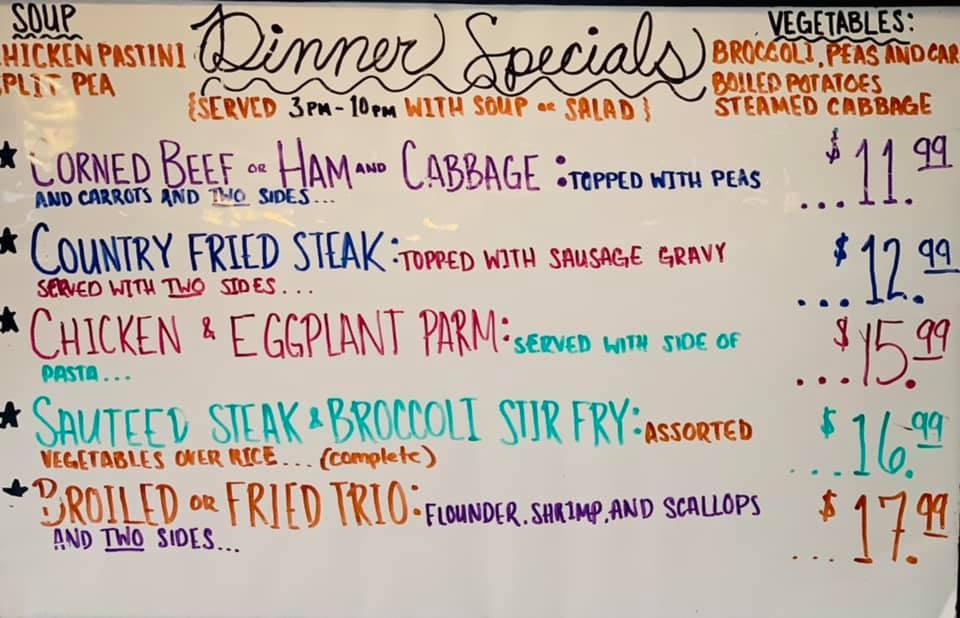 SOUP
HICKEN PASTINI
PLIT PEA
Dinner Specials
{SERVED 3PM-10PM WITH SOUP or SALAD}
VEGETABLES:
BROCCOLI, PEAS AND CAR
BOILED POTATOES
STEAMED CABBAGE
★ CORNED BEEF or HAM AND CABBAGE: TOPPED WITH PEAS
AND CARROTS AND TWO SIDES... ...$11.99
★ COUNTRY FRIED STEAK: TOPPED WITH SAUSAGE GRAVY
SERVED WITH TWO SIDES... ...$12.99
★ CHICKEN & EGGPLANT PARM: SERVED WITH SIDE OF
PASTA... ...$15.99
★ SAUTEED STEAK & BROCCOLI STIR FRY: ASSORTED
VEGETABLES OVER RICE... (complete) ...$16.99
★ BROILED OR FRIED TRIO: FLOUNDER, SHRIMP, AND SCALLOPS
AND TWO SIDES... ...$17.99